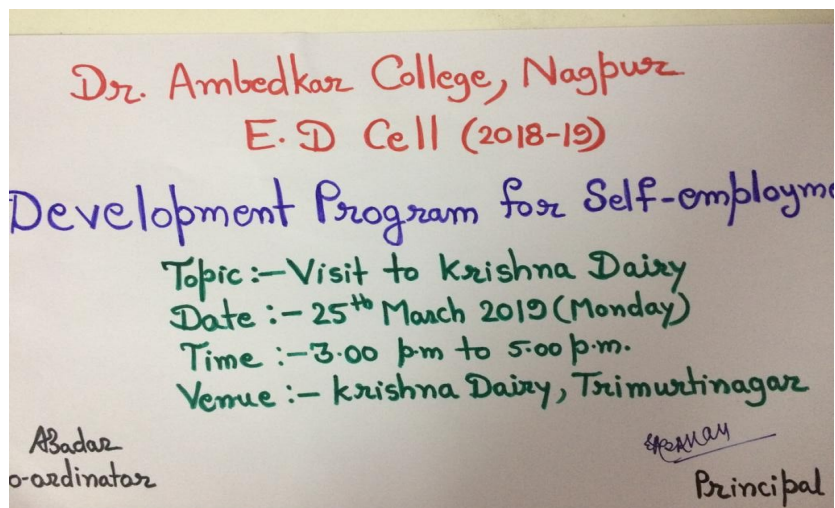 Dr. Ambedkar College, Nagpur
E.D Cell (2018-19)
Development Program for Self-employme
Topic :- Visit to Krishna Dairy
Date :- 25th March 2019 (Monday)
Time :- 3.00 p.m to 5.00 p.m.
Venue :- Krishna Dairy, Trimurtinagar
ABadar
o-ordinator
Principal